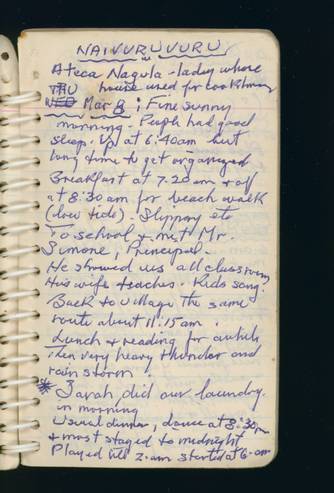 NAIVURUVURU
Ateca Nagula - lady whose
house used for cooking
THU
WED Mar 8; Fine sunny
morning. People had good
sleep. Up at 6:40am but
long time to get organized
Breakfast at 7.20am & off
at 8:30am for beach walk
(low tide). Slippery etc
To school & met Mr.
Simone, Principal.
He showed us all classrooms
His wife teaches. Kids sang.
Back to village the same
route about 11.15am.
Lunch & reading for awhile
then very heavy thunder and
rain storm.
* Sarah did our laundry.
in morning
Usual dinner, dance at 8:30pm
& most stayed to midnight
Played till 2.am started at 6.